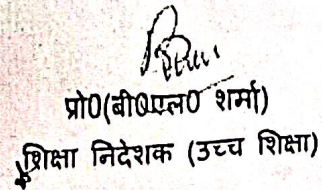 प्रो0(बी0एल0 शर्मा)
शिक्षा निदेशक (उच्च शिक्षा)